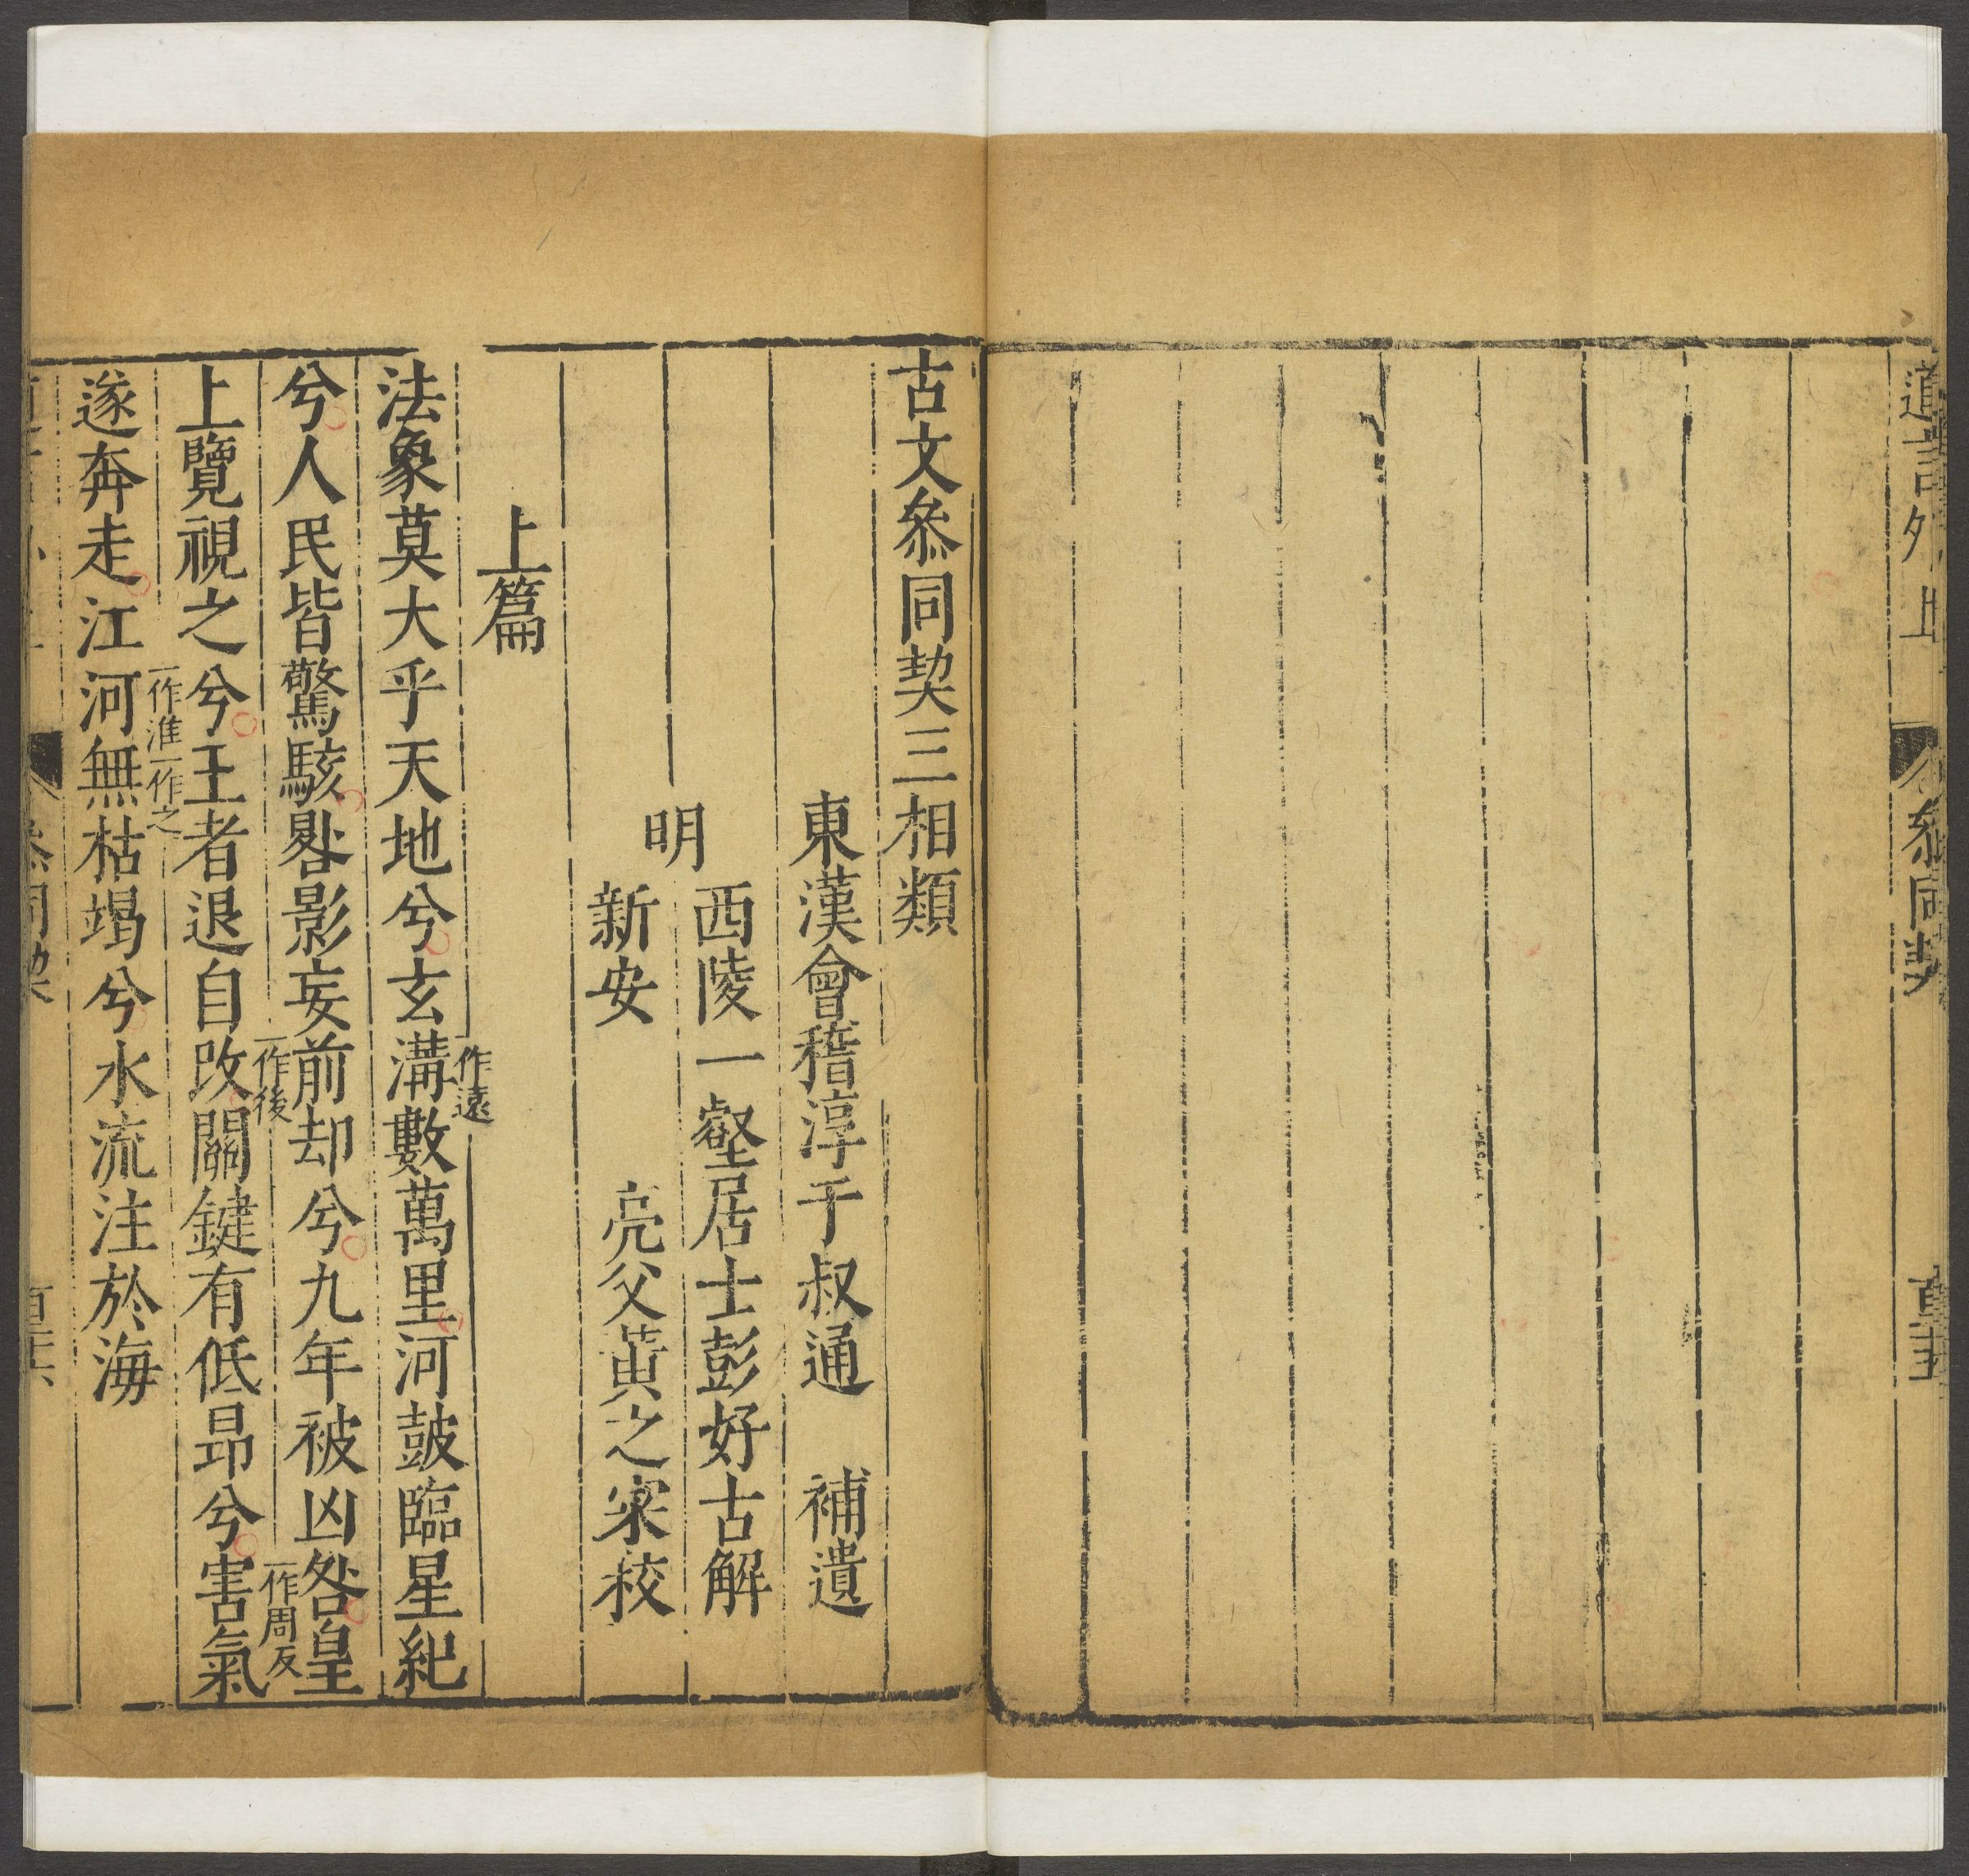 古文叅同契三相類
東漢會稽淳于叔通　補遺
明
西陵一壑居士彭好古解
新安　亮父黃之寀校
上篇
一作遠
法象莫大乎天地兮玄溝數萬里河皷臨星紀
兮人民皆驚駭晷影妄前却兮九年被凶咎皇
一作後
一作周反
上覽視之兮王者退自改關鍵有低昂兮害氣
一作淮一作之
遂奔走江河無枯竭兮水流注於海